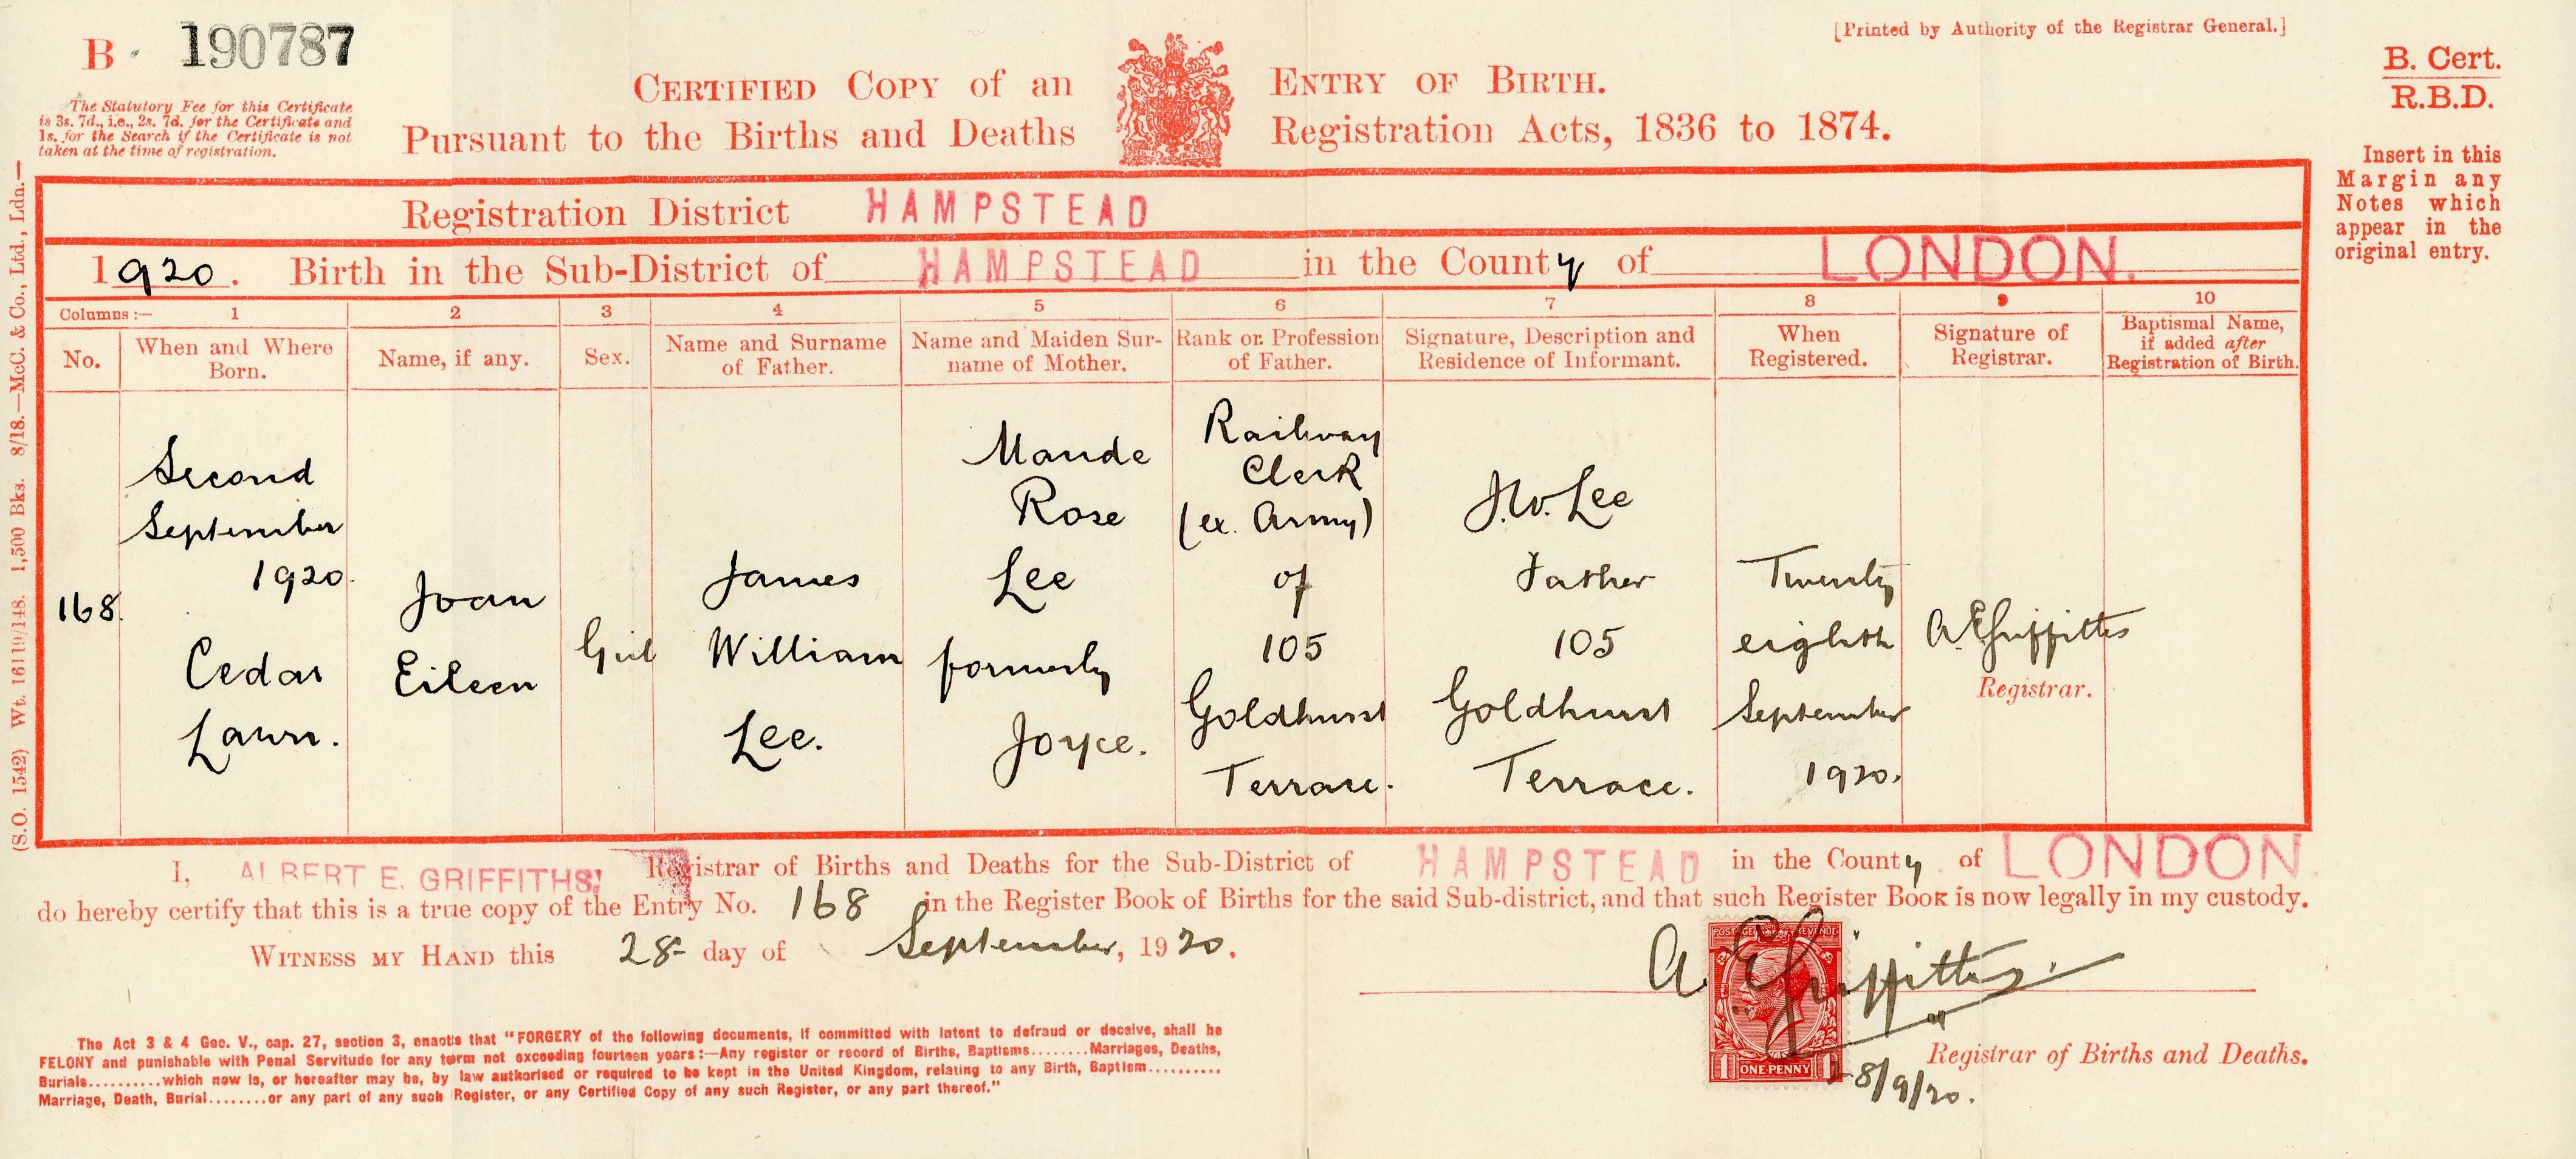 B 190787
[Printed by Authority of the Registrar General.]
B. Cert.
R.B.D.
The Statutory Fee for this Certificate
is 3s. 7d., i.e., 2s. 7d. for the Certificate and
1s. for the Search if the Certificate is not
taken at the time of registration.
CERTIFIED COPY of an ENTRY OF BIRTH.
Pursuant to the Births and Deaths Registration Acts, 1836 to 1874.
Insert in this
Margin any
Notes which
appear in the
original entry.
Registration District HAMPSTEAD
1920. Birth in the Sub-District of HAMPSTEAD in the County of LONDON.
Columns :— 1 2 3 4 5 6 7 8 9 10
No.
When and Where
Born.
Name, if any.
Sex.
Name and Surname
of Father.
Name and Maiden Sur-
name of Mother.
Rank or Profession
of Father.
Signature, Description and
Residence of Informant.
When
Registered.
Signature of
Registrar.
Baptismal Name,
if added after
Registration of Birth.
168.
Second
September
1920.
Cedar
Lawn.
Joan
Eileen
Girl
James
William
Lee.
Maude
Rose
Lee
formerly
Joyce.
Railway
Clerk
(ex. Army)
of
105
Goldhurst
Terrace.
J.W. Lee
Father
105
Goldhurst
Terrace.
Twenty
eighth
September
1920.
A.E. Griffiths
Registrar.
I, ALBERT E. GRIFFITHS, Registrar of Births and Deaths for the Sub-District of HAMPSTEAD in the County of LONDON
do hereby certify that this is a true copy of the Entry No. 168 in the Register Book of Births for the said Sub-district, and that such Register Book is now legally in my custody.
WITNESS MY HAND this 28 day of September, 1920.
A. E. Griffiths.
POSTAGE REVENUE
1 ONE PENNY 1
28/9/20.
Registrar of Births and Deaths.
The Act 3 & 4 Geo. V., cap. 27, section 3, enacts that "FORGERY of the following documents, if committed with intent to defraud or deceive, shall be
FELONY and punishable with Penal Servitude for any term not exceeding fourteen years:—Any register or record of Births, Baptisms........Marriages, Deaths,
Burials..........which now is, or hereafter may be, by law authorised or required to be kept in the United Kingdom, relating to any Birth, Baptism..........
Marriage, Death, Burial........or any part of any such Register, or any Certified Copy of any such Register, or any part thereof."
(S.O. 1542) Wt. 16119/148. 1,500 Bks. 8/18.—McC. & Co., Ltd., Ldn.—